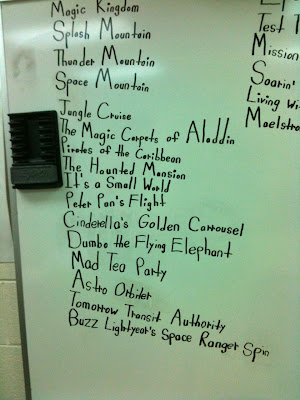 Magic Kingdom
Splash Mountain
Thunder Mountain
Space Mountain
Jungle Cruise
The Magic Carpets of Aladdin
Pirates of the Caribbean
The Haunted Mansion
It's a Small World
Peter Pan's Flight
Cinderella's Golden Carrousel
Dumbo the Flying Elephant
Mad Tea Party
Astro Orbiter
Tomorrow Transit Authority
Buzz Lightyear's Space Ranger Spin
Test
Mission
Soarin'
Living
Maelstro